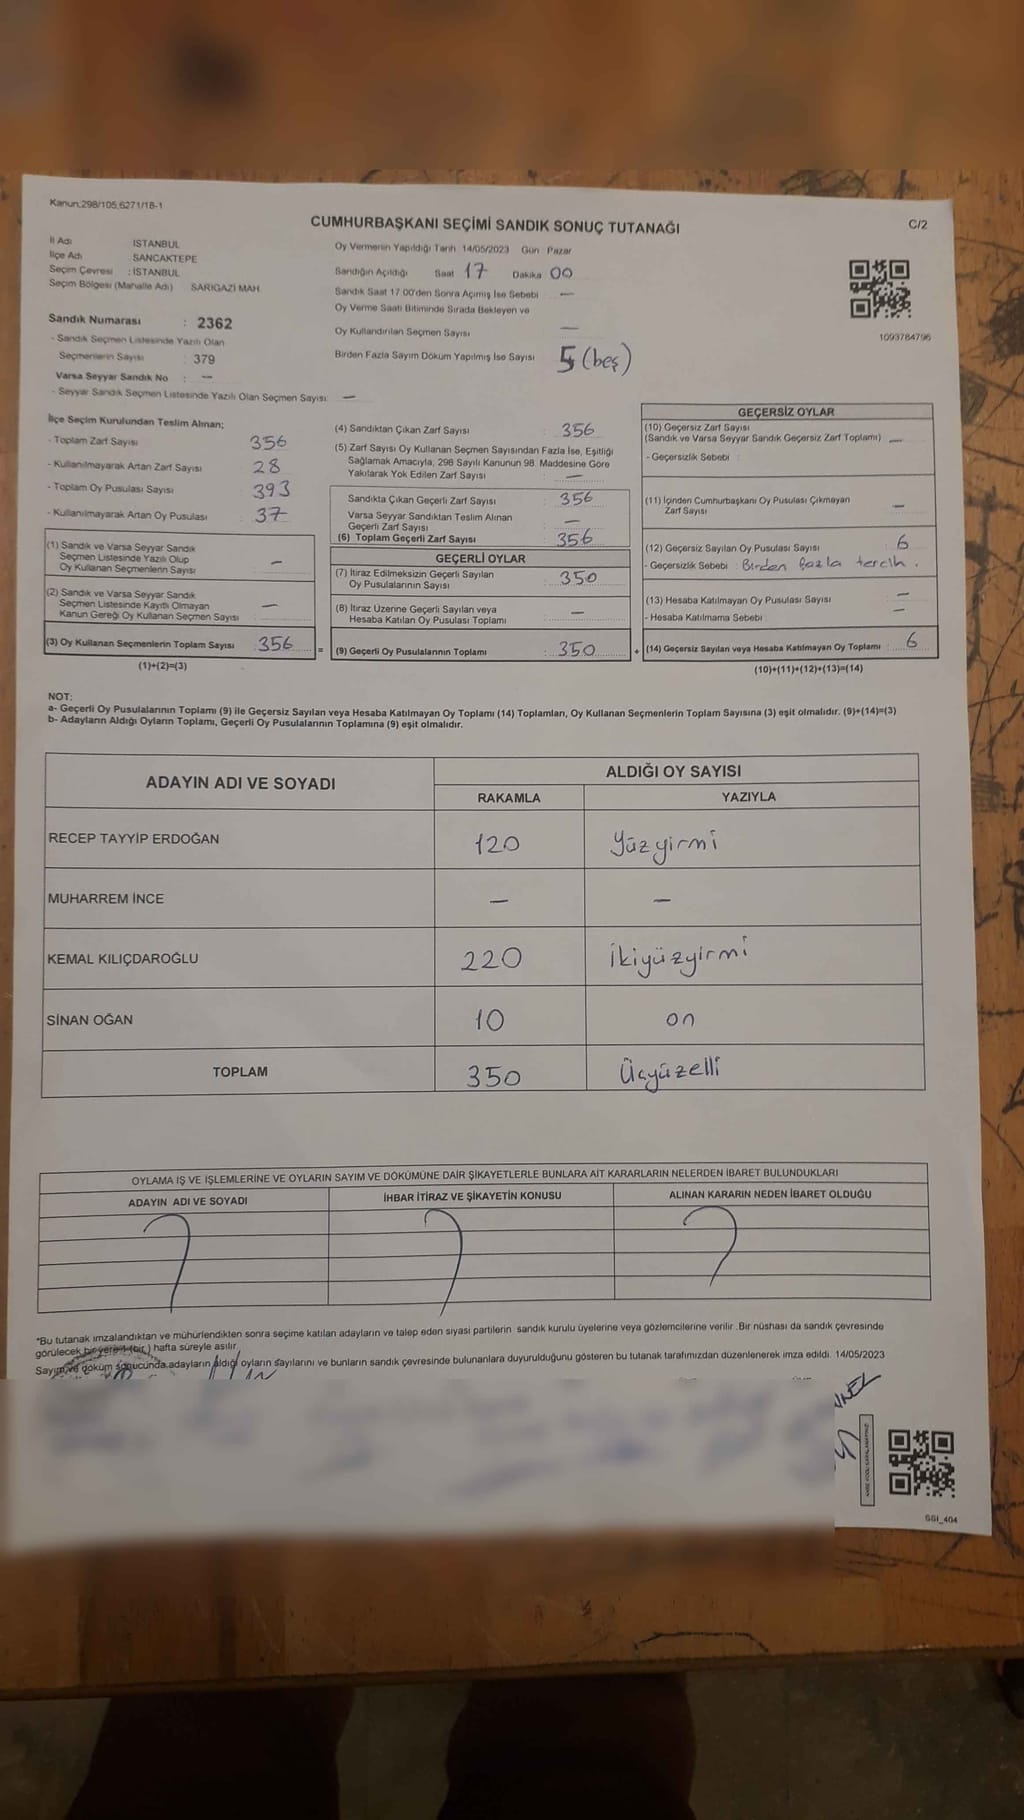 Kanun:298/105,6271/18-1
CUMHURBAŞKANI SEÇİMİ SANDIK SONUÇ TUTANAĞI
C/2
İl Adı İSTANBUL
İlçe Adı SANCAKTEPE
Seçim Çevresi : İSTANBUL
Seçim Bölgesi (Mahalle Adı) SARIGAZİ MAH.
Sandık Numarası : 2362
- Sandık Seçmen Listesinde Yazılı Olan
Seçmenlerin Sayısı : 379
Varsa Seyyar Sandık No : —
- Seyyar Sandık Seçmen Listesinde Yazılı Olan Seçmen Sayısı: —
Oy Vermenin Yapıldığı Tarih 14/05/2023 Gün Pazar
Sandığın Açıldığı Saat 17 Dakika 00
Sandık Saat 17:00'den Sonra Açımış İse Sebebi —
Oy Verme Saati Bitiminde Sırada Bekleyen ve
Oy Kullandırılan Seçmen Sayısı —
Birden Fazla Sayım Döküm Yapılmış İse Sayısı 5 (beş)
1093764796
İlçe Seçim Kurulundan Teslim Alınan;
- Toplam Zarf Sayısı 356
- Kullanılmayarak Artan Zarf Sayısı 28
- Toplam Oy Pusulası Sayısı 393
- Kullanılmayarak Artan Oy Pusulası 37
(1) Sandık ve Varsa Seyyar Sandık
Seçmen Listesinde Yazılı Olup
Oy Kullanan Seçmenlerin Sayısı —
(2) Sandık ve Varsa Seyyar Sandık
Seçmen Listesinde Kayıtlı Olmayan
Kanun Gereği Oy Kullanan Seçmen Sayısı —
(3) Oy Kullanan Seçmenlerin Toplam Sayısı 356 =
(1)+(2)=(3)
(4) Sandıktan Çıkan Zarf Sayısı : 356
(5) Zarf Sayısı Oy Kullanan Seçmen Sayısından Fazla İse, Eşitliği
Sağlamak Amacıyla, 298 Sayılı Kanunun 98 Maddesine Göre
Yakılarak Yok Edilen Zarf Sayısı —
Sandıkta Çıkan Geçerli Zarf Sayısı : 356
Varsa Seyyar Sandıktan Teslim Alınan
Geçerli Zarf Sayısı —
(6) Toplam Geçerli Zarf Sayısı : 356
GEÇERLİ OYLAR
(7) İtiraz Edilmeksizin Geçerli Sayılan
Oy Pusulalarının Sayısı : 350
(8) İtiraz Üzerine Geçerli Sayılan veya
Hesaba Katılan Oy Pusulası Toplamı —
(9) Geçerli Oy Pusulalarının Toplamı : 350 +
GEÇERSİZ OYLAR
(10) Geçersiz Zarf Sayısı
(Sandık ve Varsa Seyyar Sandık Geçersiz Zarf Toplamı) —
- Geçersizlik Sebebi :
(11) İçinden Cumhurbaşkanı Oy Pusulası Çıkmayan
Zarf Sayısı —
(12) Geçersiz Sayılan Oy Pusulası Sayısı : 6
- Geçersizlik Sebebi : Birden fazla tercih.
(13) Hesaba Katılmayan Oy Pusulası Sayısı —
- Hesaba Katılmama Sebebi —
(14) Geçersiz Sayılan veya Hesaba Katılmayan Oy Toplamı : 6
(10)+(11)+(12)+(13)=(14)
NOT:
a- Geçerli Oy Pusulalarının Toplamı (9) ile Geçersiz Sayılan veya Hesaba Katılmayan Oy Toplamı (14) Toplamları, Oy Kullanan Seçmenlerin Toplam Sayısına (3) eşit olmalıdır. (9)+(14)=(3)
b- Adayların Aldığı Oyların Toplamı, Geçerli Oy Pusulalarının Toplamına (9) eşit olmalıdır.
ADAYIN ADI VE SOYADI
ALDIĞI OY SAYISI
RAKAMLA YAZIYLA
RECEP TAYYİP ERDOĞAN 120 Yüzyirmi
MUHARREM İNCE — —
KEMAL KILIÇDAROĞLU 220 İkiyüzyirmi
SİNAN OĞAN 10 on
TOPLAM 350 Üçyüzelli
OYLAMA İŞ VE İŞLEMLERİNE VE OYLARIN SAYIM VE DÖKÜMÜNE DAİR ŞİKAYETLERLE BUNLARA AİT KARARLARIN NELERDEN İBARET BULUNDUKLARI
ADAYIN ADI VE SOYADI İHBAR İTİRAZ VE ŞİKAYETİN KONUSU ALINAN KARARIN NEDEN İBARET OLDUĞU
*Bu tutanak imzalandıktan ve mühürlendikten sonra seçime katılan adayların ve talep eden siyasi partilerin sandık kurulu üyelerine veya gözlemcilerine verilir. Bir nüshası da sandık çevresinde
görülecek bir yere 1 (bir) hafta süreyle asılır.
Sayım ve döküm sonucunda adayların aldığı oyların sayılarını ve bunların sandık çevresinde bulunanlara duyurulduğunu gösteren bu tutanak tarafımızdan düzenlenerek imza edildi. 14/05/2023
GGI_404